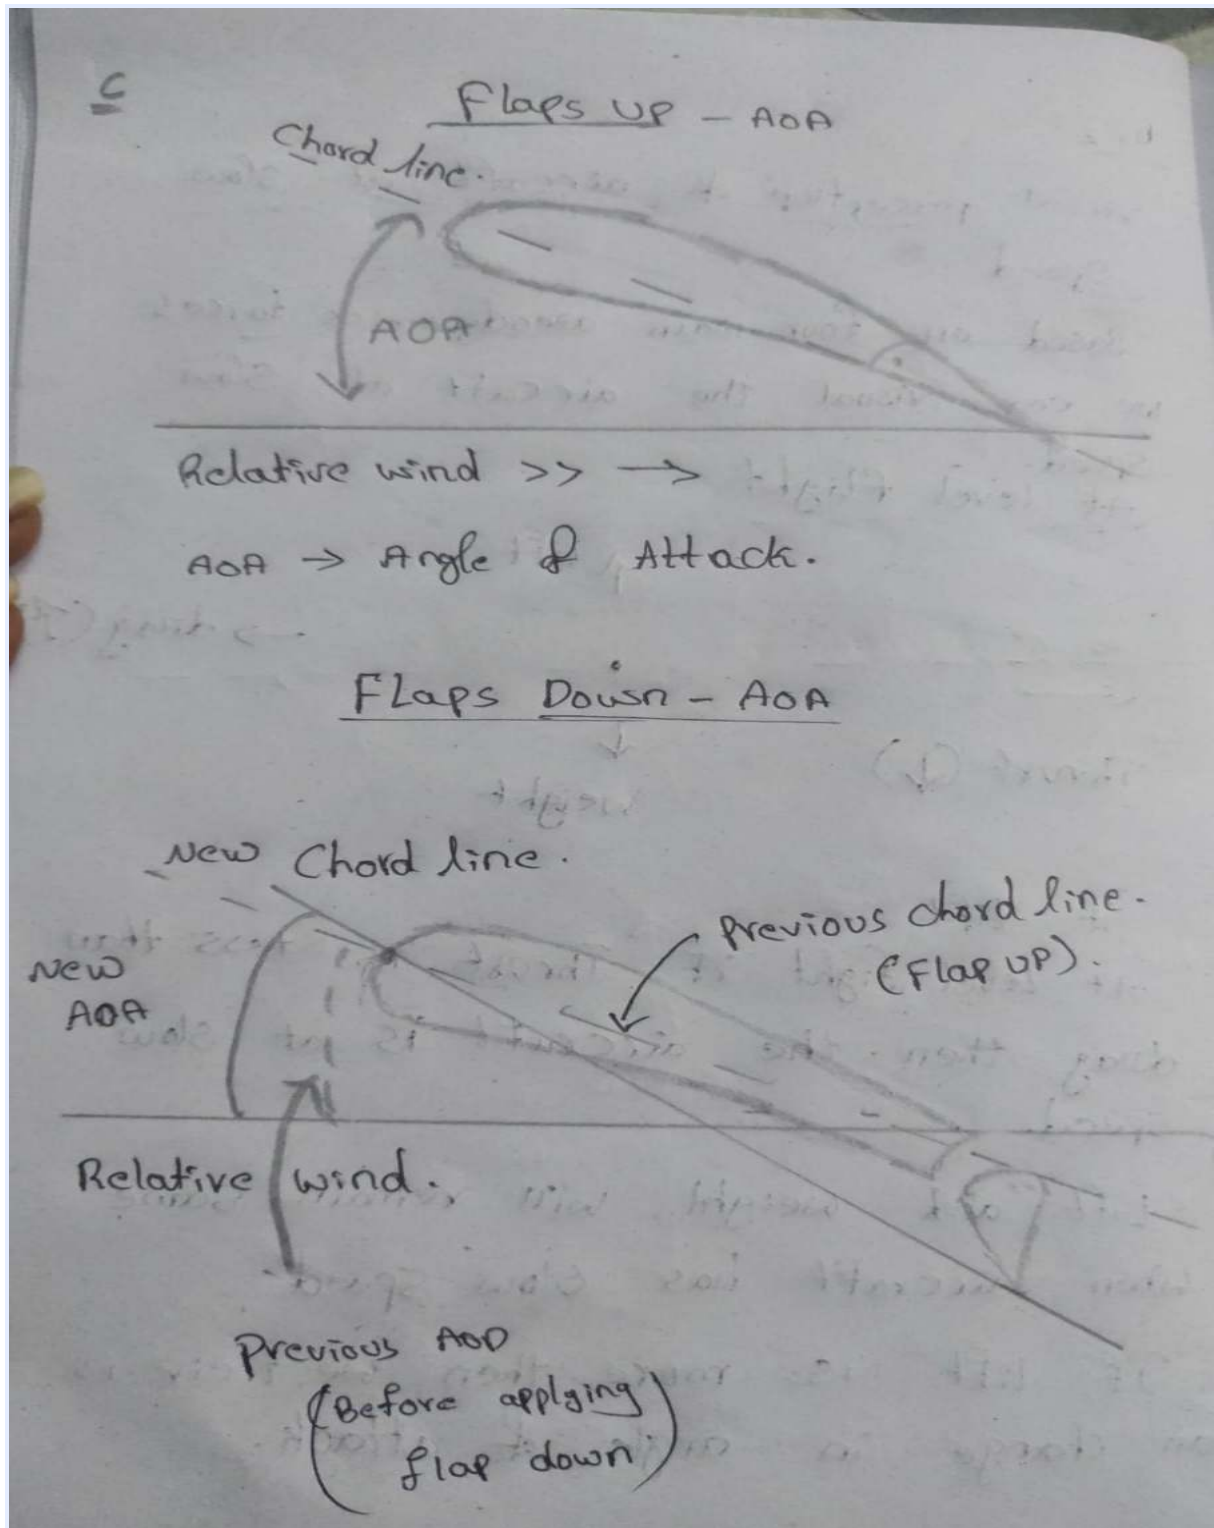 C
Flaps UP - AOA
Chord line.
AOA
Relative wind >> →
AOA → Angle of Attack.
Flaps Down - AOA
New Chord line.
Previous chord line.
(Flap UP).
New
AOA
Relative wind.
Previous AOD
(Before applying
flap down)